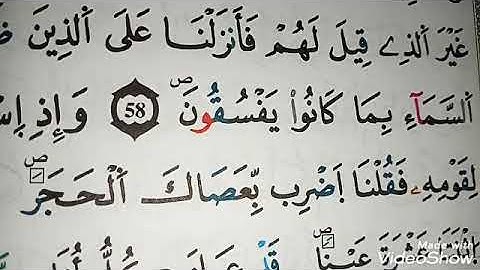 غَيْرَ اَ۬لذِے قِيلَ لَهُمْ فَأَنزَلْنَا عَلَى اَ۬لذِينَ
اَ۬لسَّمَآءِ بِمَا كَانُواْ يَفْسُقُونَۖ 58 وَإِذِ
لِقَوْمِهِۦ فَقُلْنَا اَ۪ضْرِب بِّعَصَاكَ اَ۬لْحَجَرَۖ
عَيْناٗۖ قَدْ
Made with
VideoShow